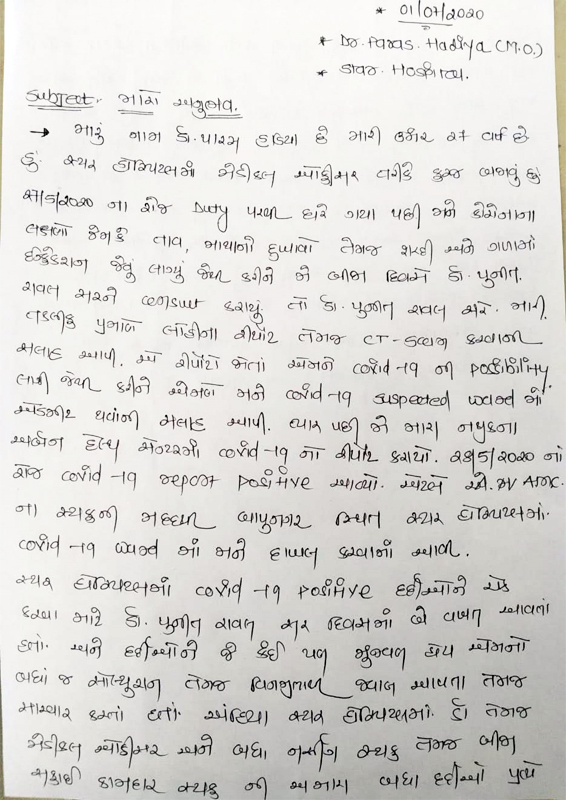 * 01/07/2020
* Dr. Paras. Hadiya (M.O.)
* સ્ટાર. Hospital.
Subject:- મારો અનુભવ.
→ મારું નામ ડો. પારસ હડિયા છે મારી ઉંમર ૨૭ વર્ષ છે
હું સ્ટાર હોસ્પિટલમાં મેડીકલ ઓફીસર તરીકે ફરજ બજાવું છું
૨૭/5/2020 ના રોજ Duty પરથી ઘરે ગયા પછી મને કોરોનાના
લક્ષણો જેમકે તાવ, માથાનો દુખાવો તેમજ શરદી અને ગળામાં
ઈન્ફેકશન જેવું લાગ્યું જેથી કરીને મે બીજા દિવસે ડો. પુનીત.
રાવલ સરને કરાયું તો ડો. પુનીત રાવલ સરે. મારી.
તકલીફ પ્રમાણે લોહીના રીપોર્ટ તેમજ CT-સ્કેન કરવાની
સલાહ આપી. એ રીપોર્ટો જોતાં એમને covid-19 ની possibility.
લાગી જેથી કરીને એમણે મને covid-19 suspected ward માં
એડમીટ થવાની સલાહ આપી. ત્યાર પછી મે મારા નજીકના
અર્બન હેલ્થ સેન્ટરમાં covid-19 નો રીપોર્ટ કરાયો. ૨૭/5/2020 નો
રોજ covid-19 report positive આવ્યો. એટલે AMC.
ના સ્ટાફની મદદથી બાપુનગર સ્થિત સ્ટાર હોસ્પિટલમાં.
covid-19 ward માં મને દાખલ કરવામાં આવ્યો.
સ્ટાર હોસ્પિટલમાં covid-19 positive દર્દીઓને ચેક
કરવા માટે ડો. પુનીત રાવલ સર દિવસમાં બે વખત આવતાં
હતાં. અને દર્દીઓને જે કંઈ પણ મુંજવણ હોય એમનો
બધાં જ સોલ્યુશન તેમજ જવાબ આપતા તેમજ
સારવાર કરતાં હતાં. અહિયા સ્ટાર હોસ્પિટલમાં. ડો તેમજ
મેડીકલ ઓફીસર અને બધા નર્સીંગ સ્ટાફ તેમજ બીજા
સફાઈ કામદાર સ્ટાફ ની બધા દર્દીઓ પ્રત્યે